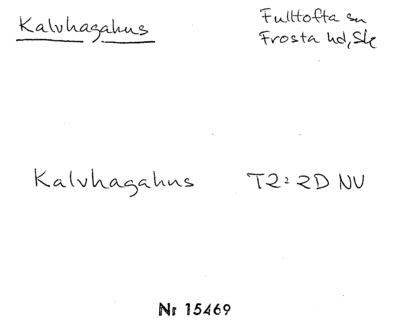 Kalvhagahus
Fulltofta sn
Frosta hd, Sk
Kalvhagahus T2:2D NV
Nr 15469